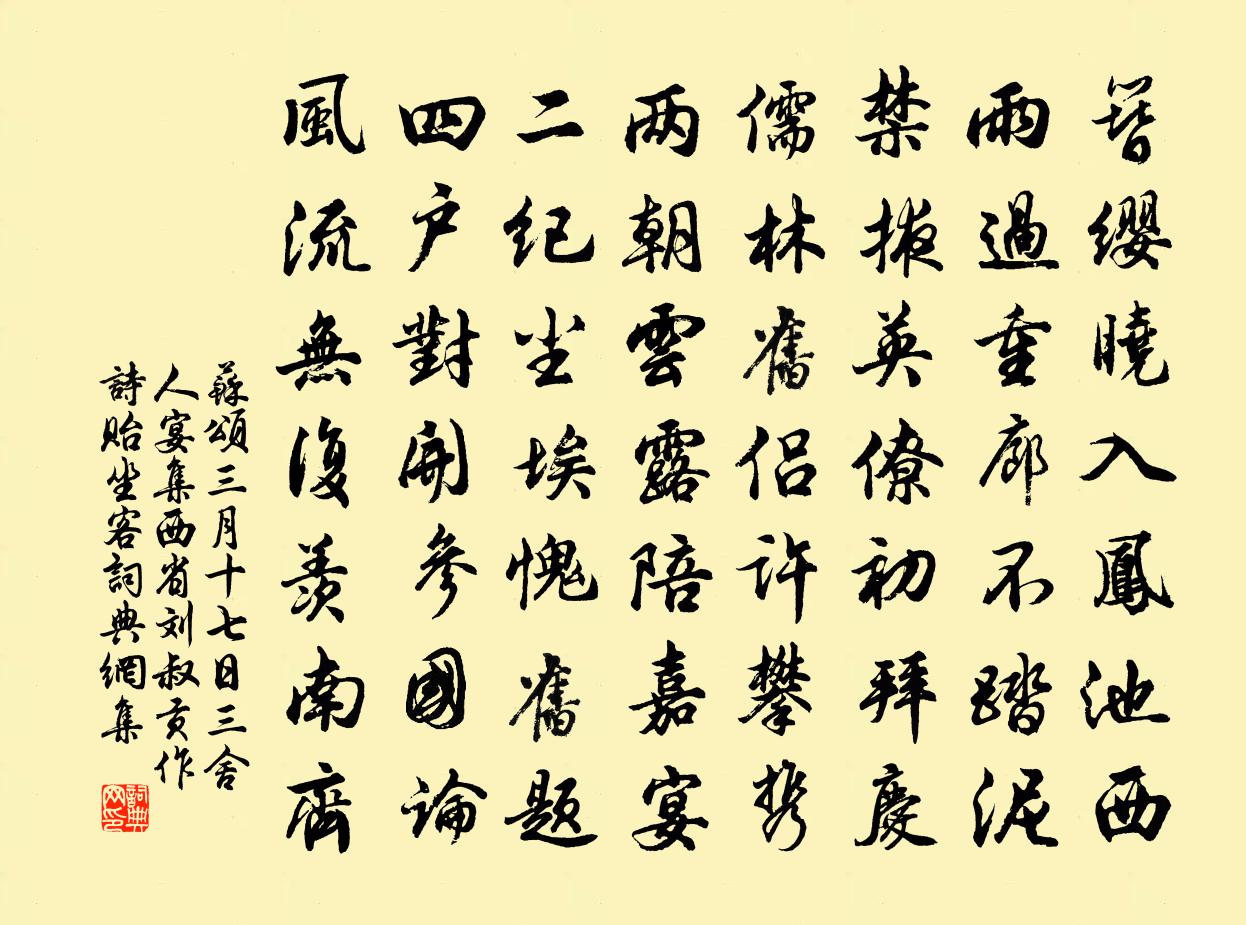 簪纓曉入鳳池西
雨過重廊不踏泥
禁掖英僚初拜慶
儒林舊侶許攀携
兩朝雲露陪嘉宴
二紀尘埃愧舊题
四户對開參國論
風流無復羨南齊
蘇頌三月十七日三舍
人宴集西省刘叔贡作
詩貽坐客詞典網集
詞典网印